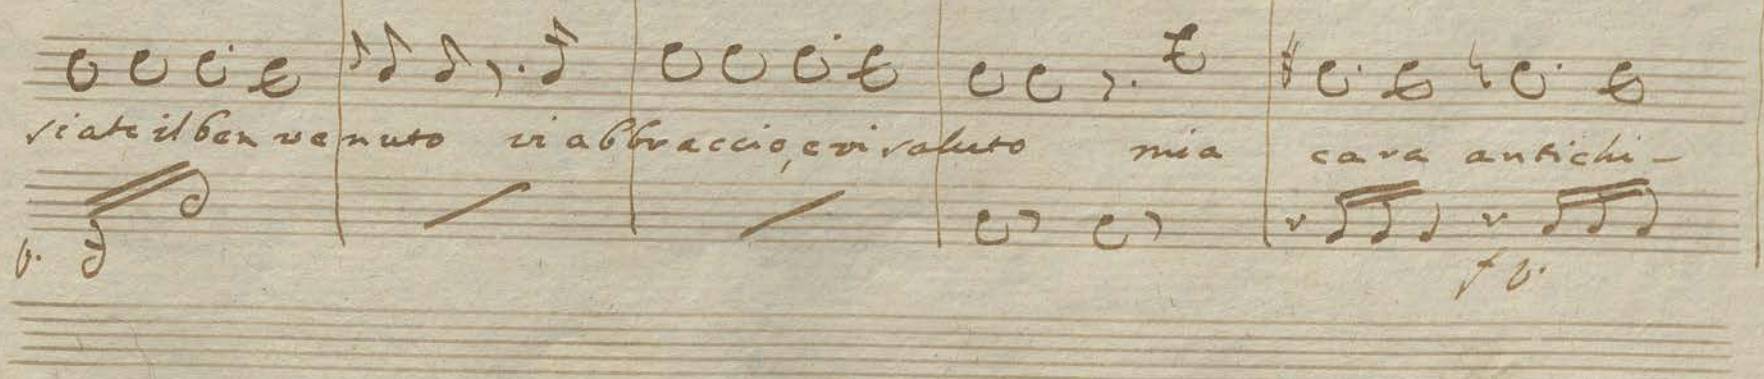 siate il ben venuto vi abbraccio, e vi saluto mia cara antichi-